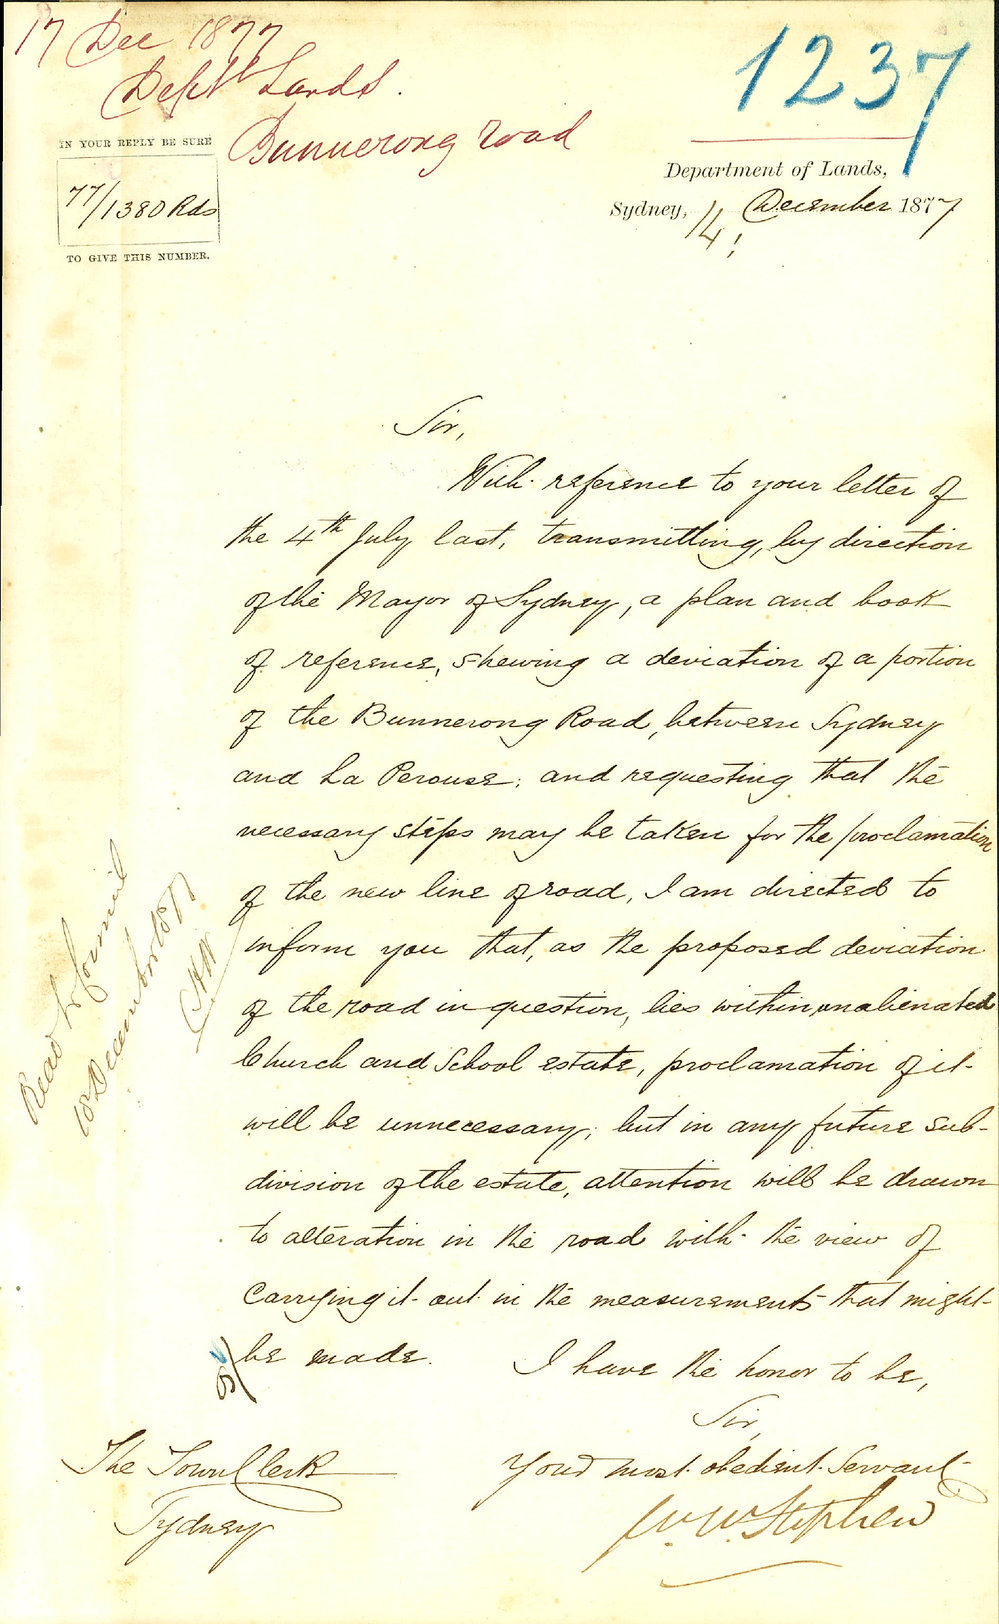 17 Dec 1877
Dept Lands.
Bunnerong road
1237
IN YOUR REPLY BE SURE
77/1380 Rds
TO GIVE THIS NUMBER.
Department of Lands,
Sydney, 14 December 1877
Sir,
With reference to your letter of
the 4th July last, transmitting, by direction
of the Mayor of Sydney, a plan and book
of reference, shewing a deviation of a portion
of the Bunnerong Road, between Sydney
and La Perouse; and requesting that the
necessary steps may be taken for the proclamation
of the new line of road, I am directed to
inform you that, as the proposed deviation
of the road in question, lies within unalienated
Church and School estate, proclamation of it
will be unnecessary; but in any future sub-
division of the estate, attention will be drawn
to alteration in the road with the view of
carrying it out in the measurements that might
be made. I have the honor to be,
Sir,
Your most obedient Servant
W. W. Stephen
The Town Clerk
Sydney
Read to Council
18 December 1877